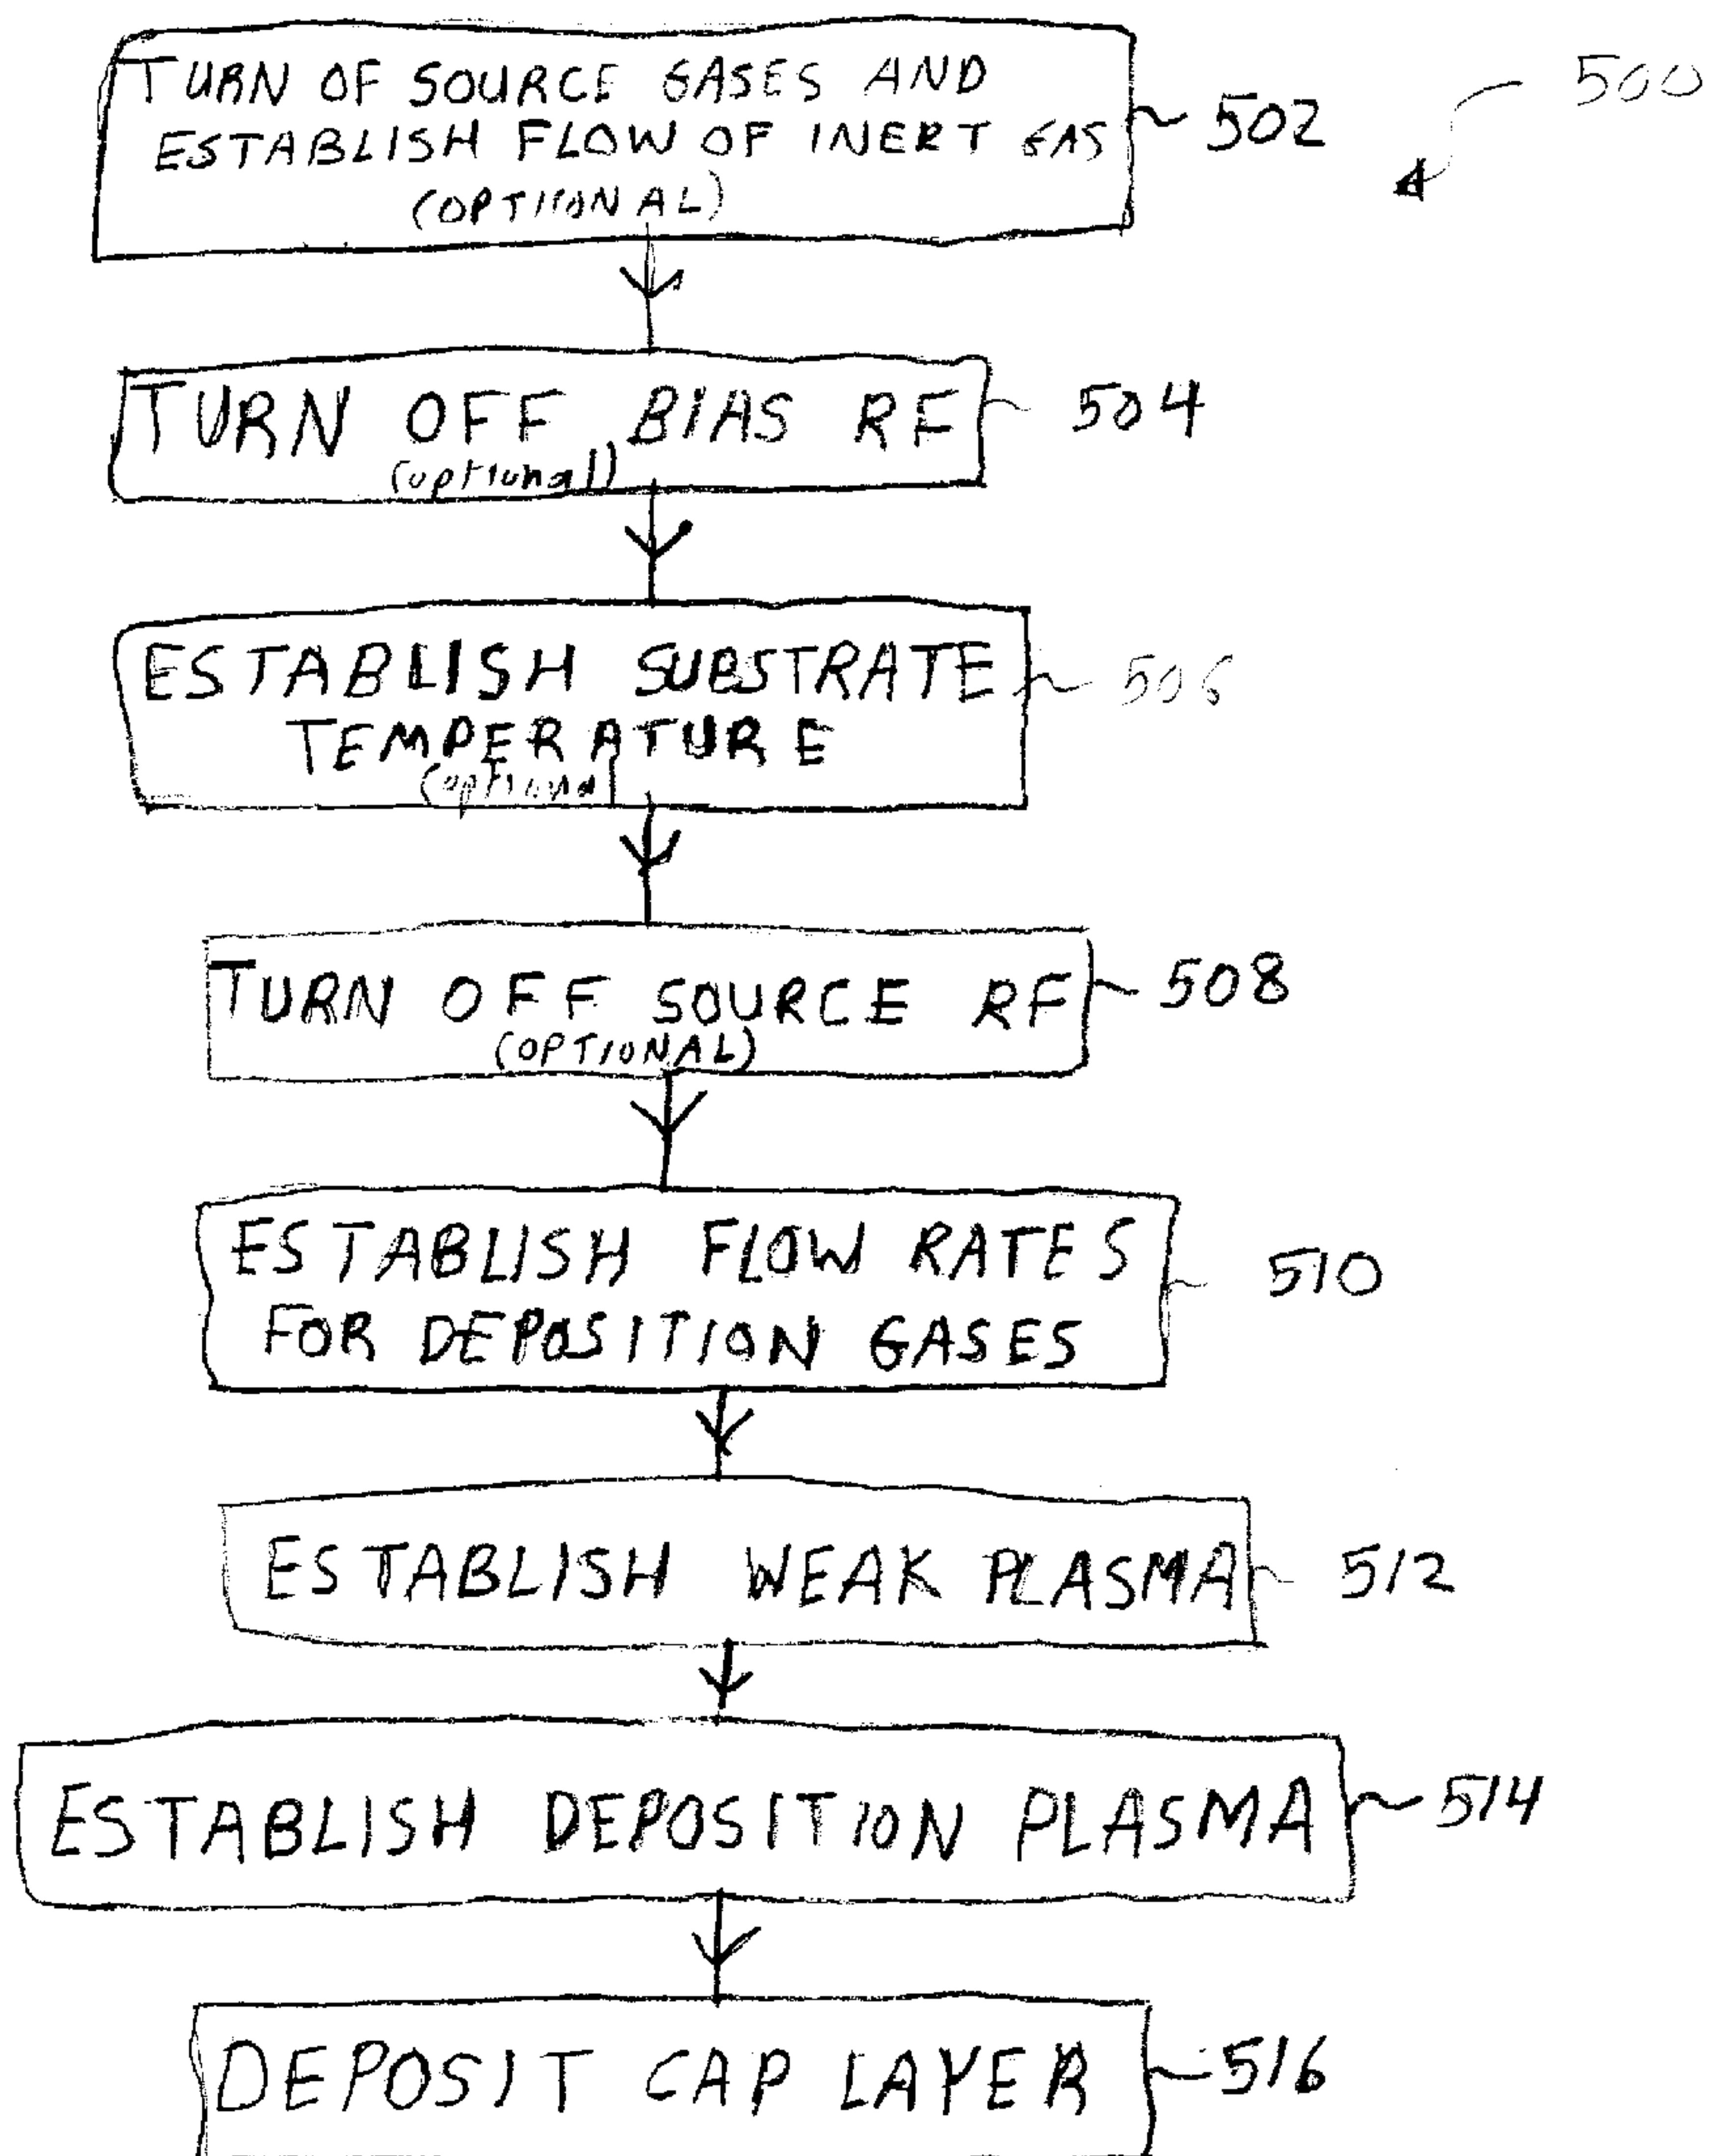 TURN OF SOURCE GASES AND
ESTABLISH FLOW OF INERT GAS
(OPTIONAL)
502
500
TURN OFF BIAS RF
(optional)
504
ESTABLISH SUBSTRATE
TEMPERATURE
(optional
506
TURN OFF SOURCE RF
(OPTIONAL)
508
ESTABLISH FLOW RATES
FOR DEPOSITION GASES
510
ESTABLISH WEAK PLASMA
512
ESTABLISH DEPOSITION PLASMA
514
DEPOSIT CAP LAYER
516